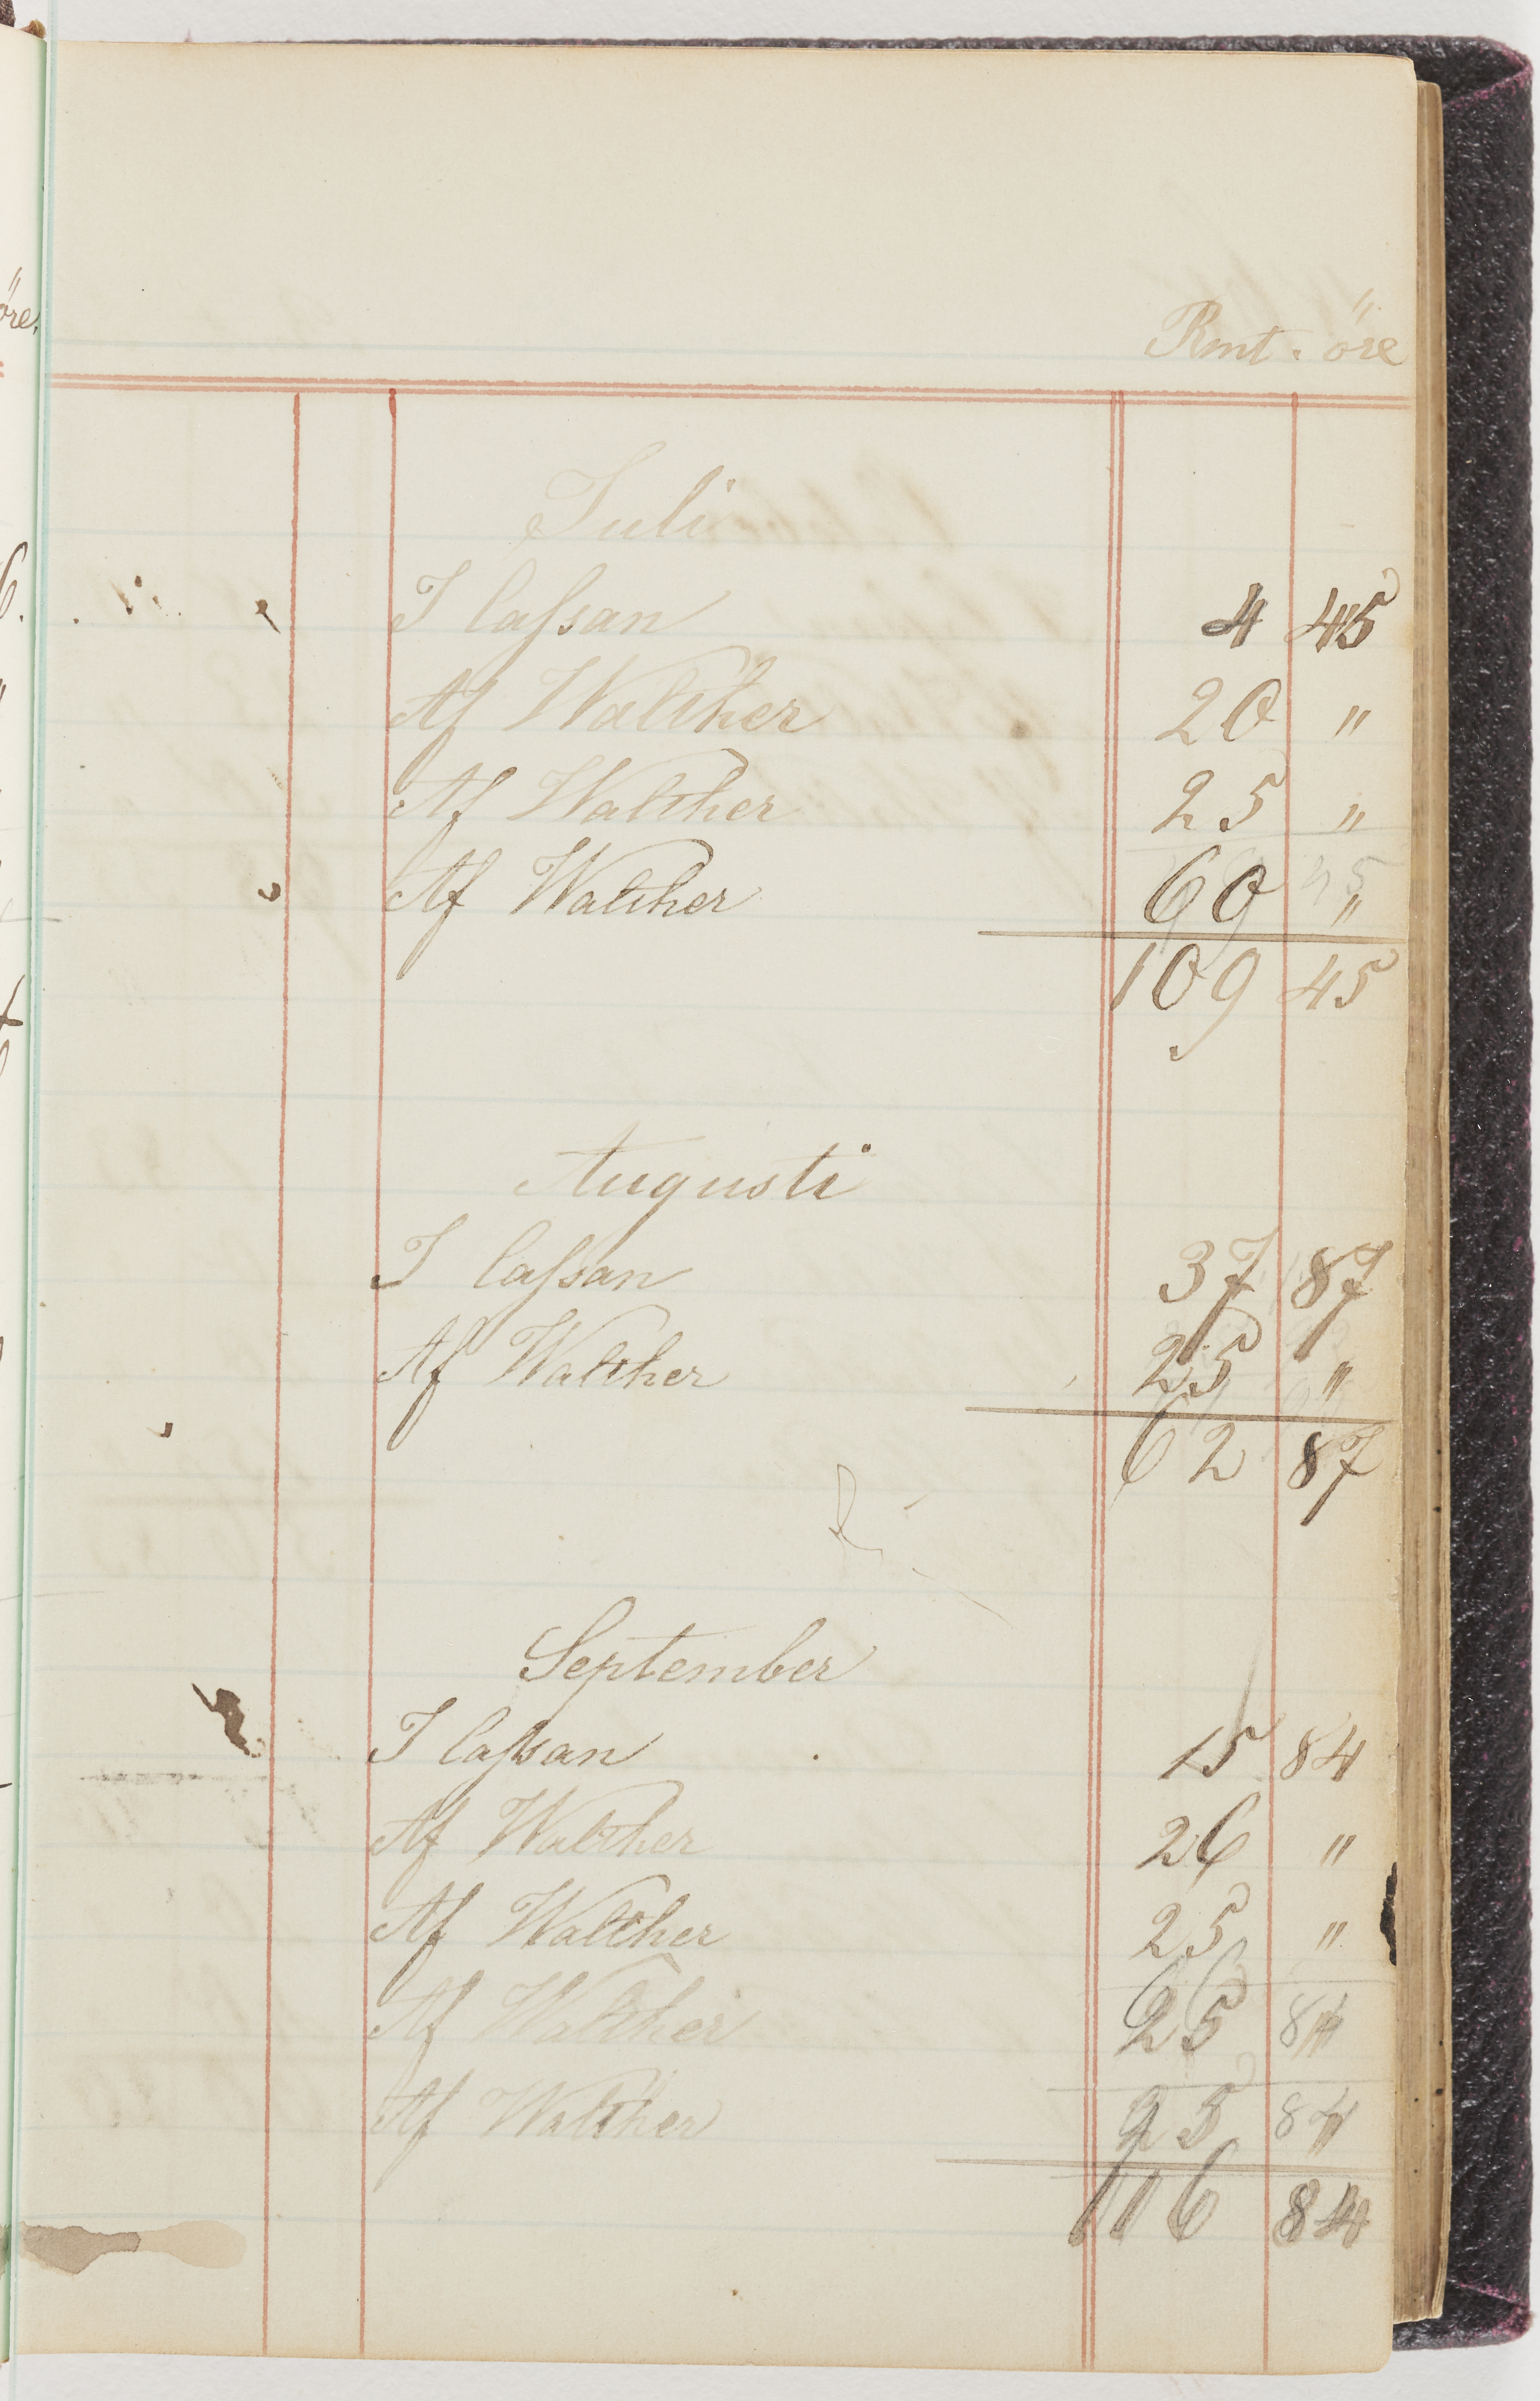 öre.
Rmt. öre
Juli
I Cassan 4 45
Af Walther 20 "
Af Walther 25 "
Af Walther 60 "
109 45
Augusti
I Cassan 37 87
Af Walther 25 "
62 87
September
I Cassan 15 84
Af Walther 26 "
Af Walther 25 "
Af Walther 25 "
Af Walther 25 "
116 84